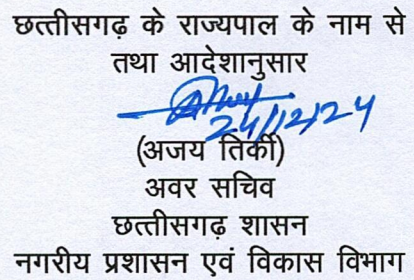 छत्तीसगढ़ के राज्यपाल के नाम से
तथा आदेशानुसार
24/12/24
(अजय तिर्की)
अवर सचिव
छत्तीसगढ़ शासन
नगरीय प्रशासन एवं विकास विभाग